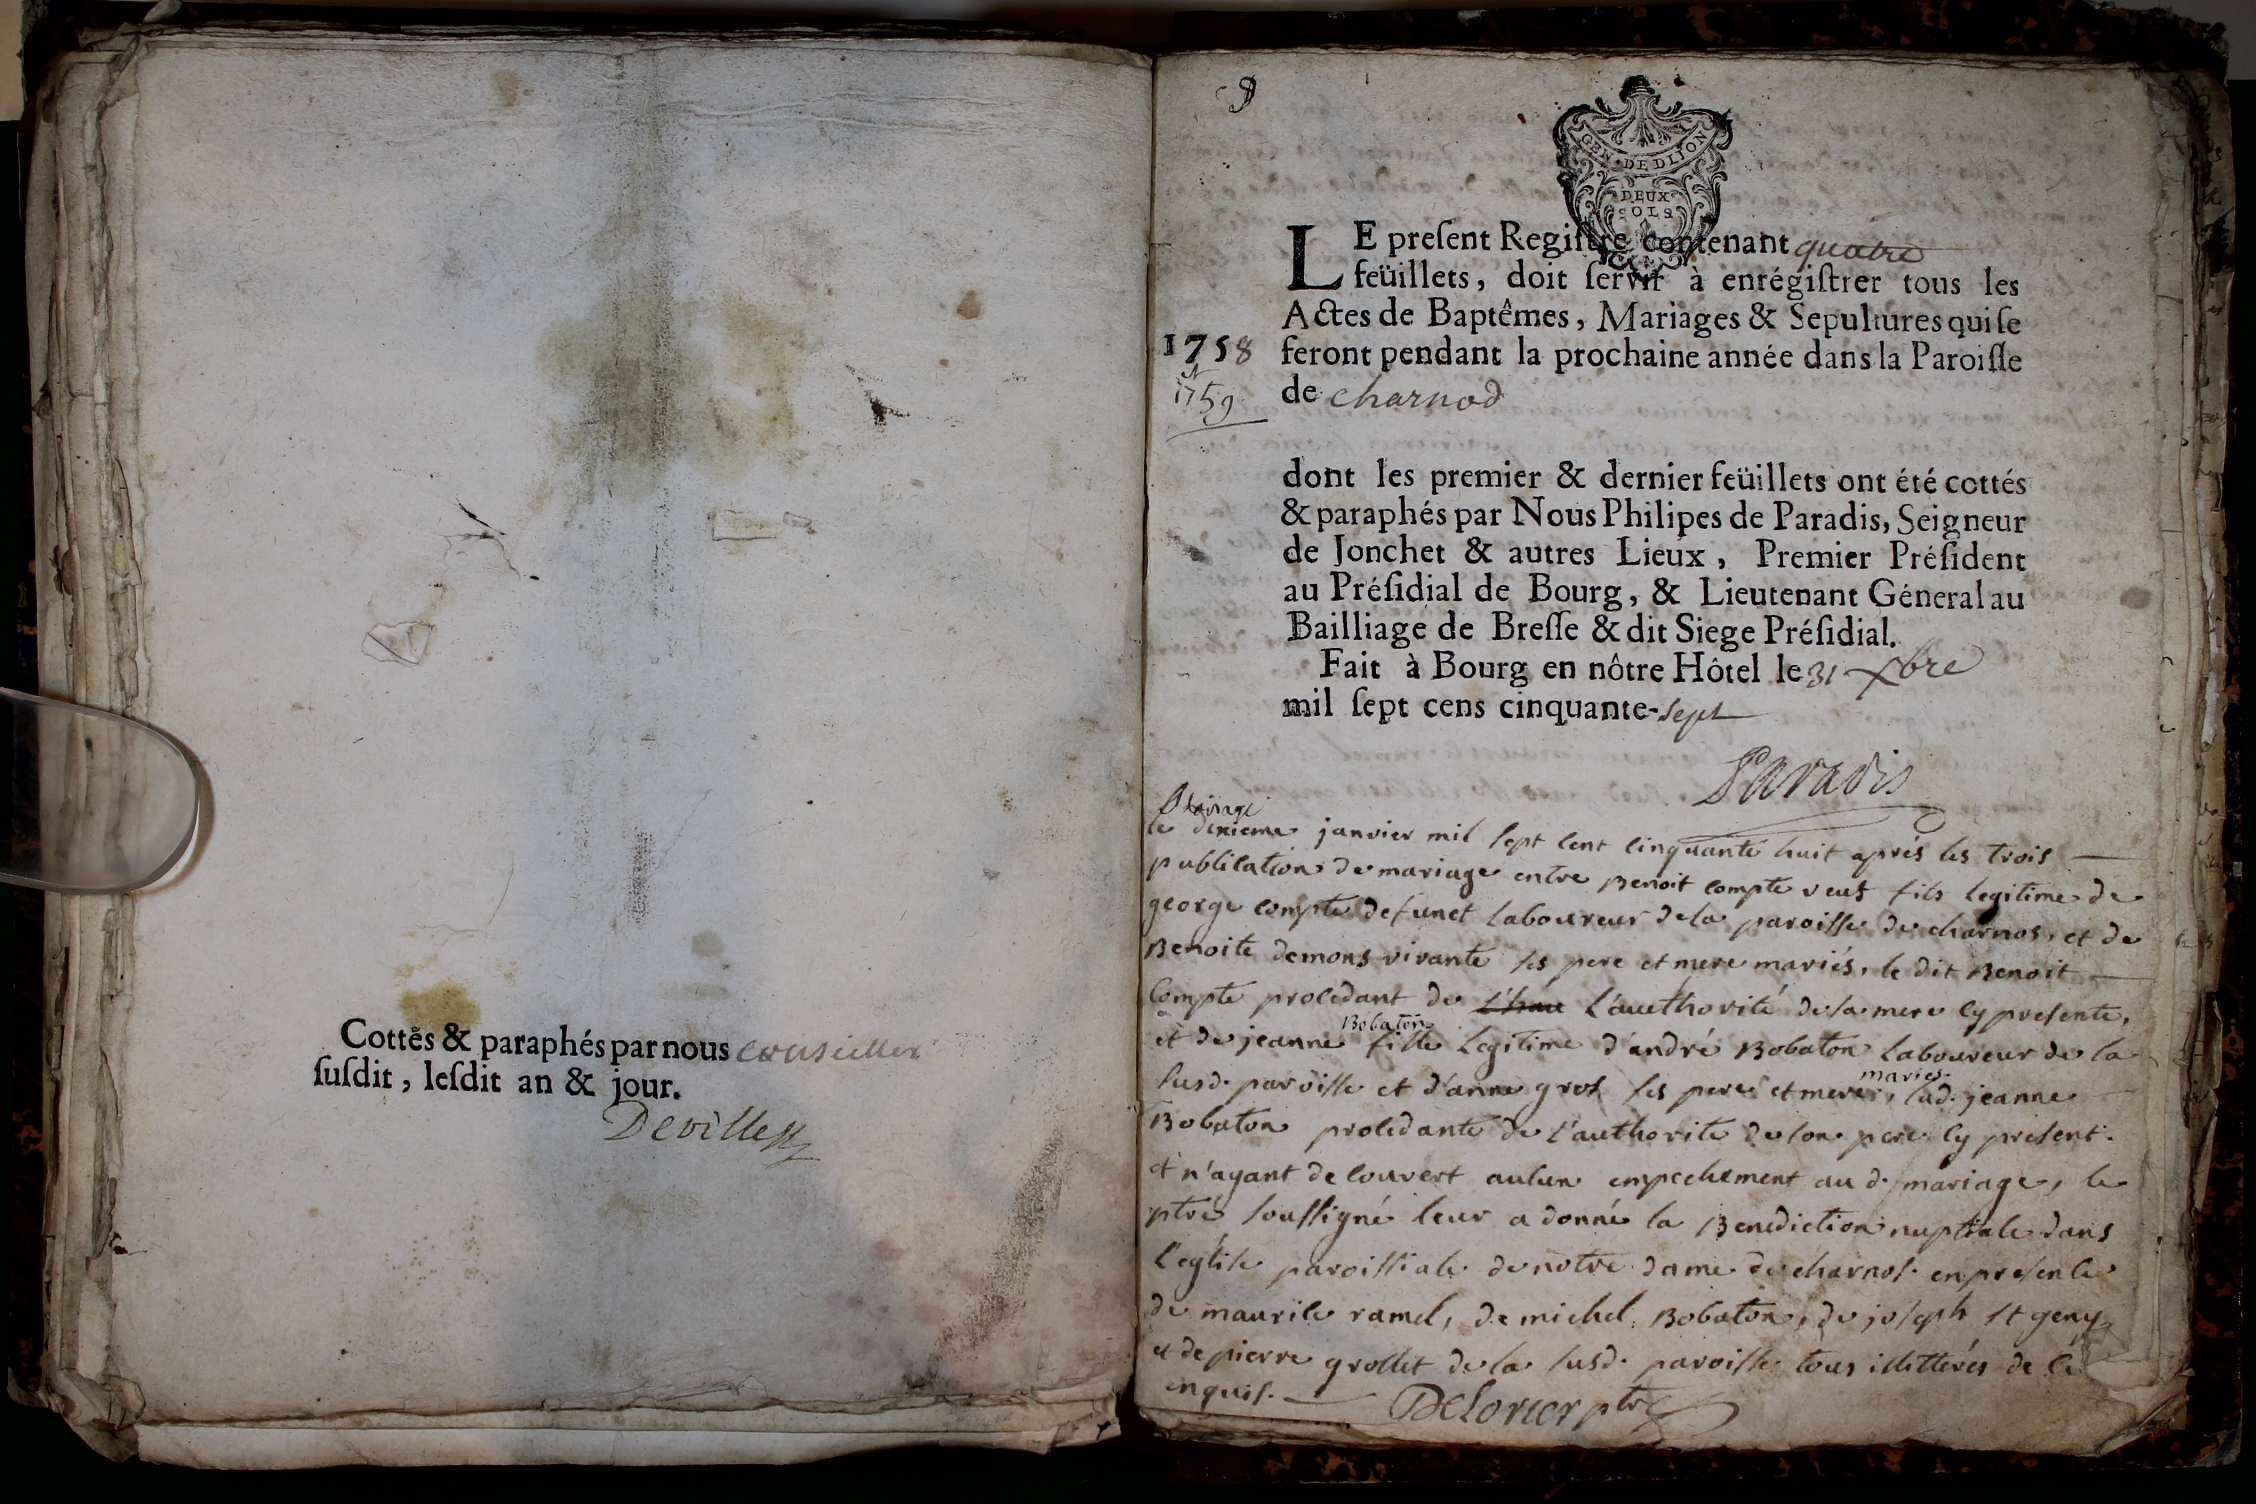 Cottés & paraphés par nous conseiller
susdit, lesdit an & jour.
Deville
GEN. DE DIJON
DEUX
SOLS
LE present Registre contenant quatre
feüillets, doit servir à enrégistrer tous les
Actes de Baptêmes, Mariages & Sepultures qui se
1758
feront pendant la prochaine année dans la Paroisse
et
1759
de charnod
dont les premier & dernier feüillets ont été cottés
& paraphés par Nous Philipes de Paradis, Seigneur
de Jonchet & autres Lieux, Premier Président
au Présidial de Bourg, & Lieutenant Géneral au
Bailliage de Bresse & dit Siege Présidial.
Fait à Bourg en nôtre Hôtel le 31 xbre
mil sept cens cinquante-sept
Paradis
le dixieme janvier mil sept cent cinquante huit aprés les trois
publication de mariage entre Benoit compte veuf fils legitime de
george compte defunct laboureur de la paroisse de charnos, et de
Benoite demons vivante ses pere et mere mariés, le dit Benoit
Compte procedant de l'hau l'authorité de sa mere cy presente,
et de jeanne Bobaton fille legitime d'andré Bobaton laboureur de la
susd. paroisse et d'anne gros ses pere et mere mariés, lad. jeanne
Bobaton procedante de l'authorite de son pere cy present.
et n'ayant decouvert aucun empechement aud. mariage, le
ptre soussigné leur a donné la Benediction nuptiale dans
l'eglise paroissiale de notre dame de charnos. en presence
de maurile ramel, de michel Bobaton, de joseph st geny
et de pierre grollet de la susd. paroisse tous illitterés de ce
enquis.
Delorier ptre